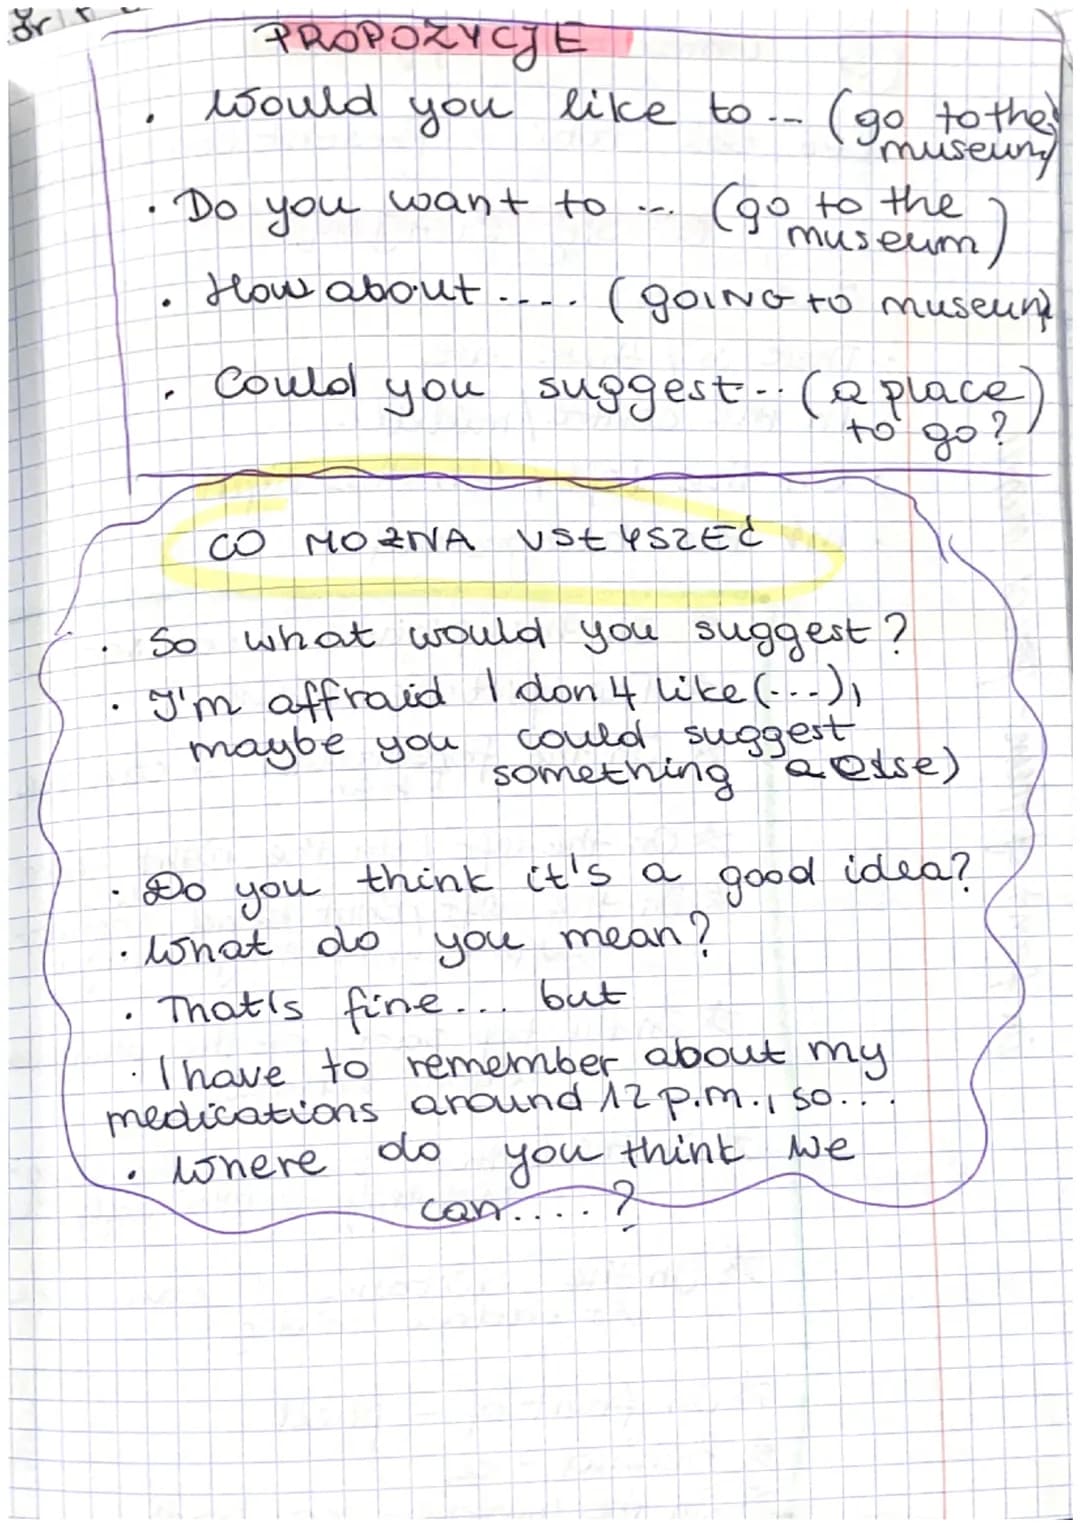 PROPOZYCJE
. Would you like to ... (go to the
museum)
. Do you want to ... (go to the
museum)
. How about .... (GOING to museum)
. Could you suggest... (a place)
to go?
CO MOŻNA USŁYSZEĆ
. So what would you suggest?
. I'm affraid I don't like (...),
maybe you could suggest
something else)
. Do you think it's a good idea?
. What do you mean?
. That's fine... but
. I have to remember about my
medications around 12 p.m., so...
. Where do you think we
can....?